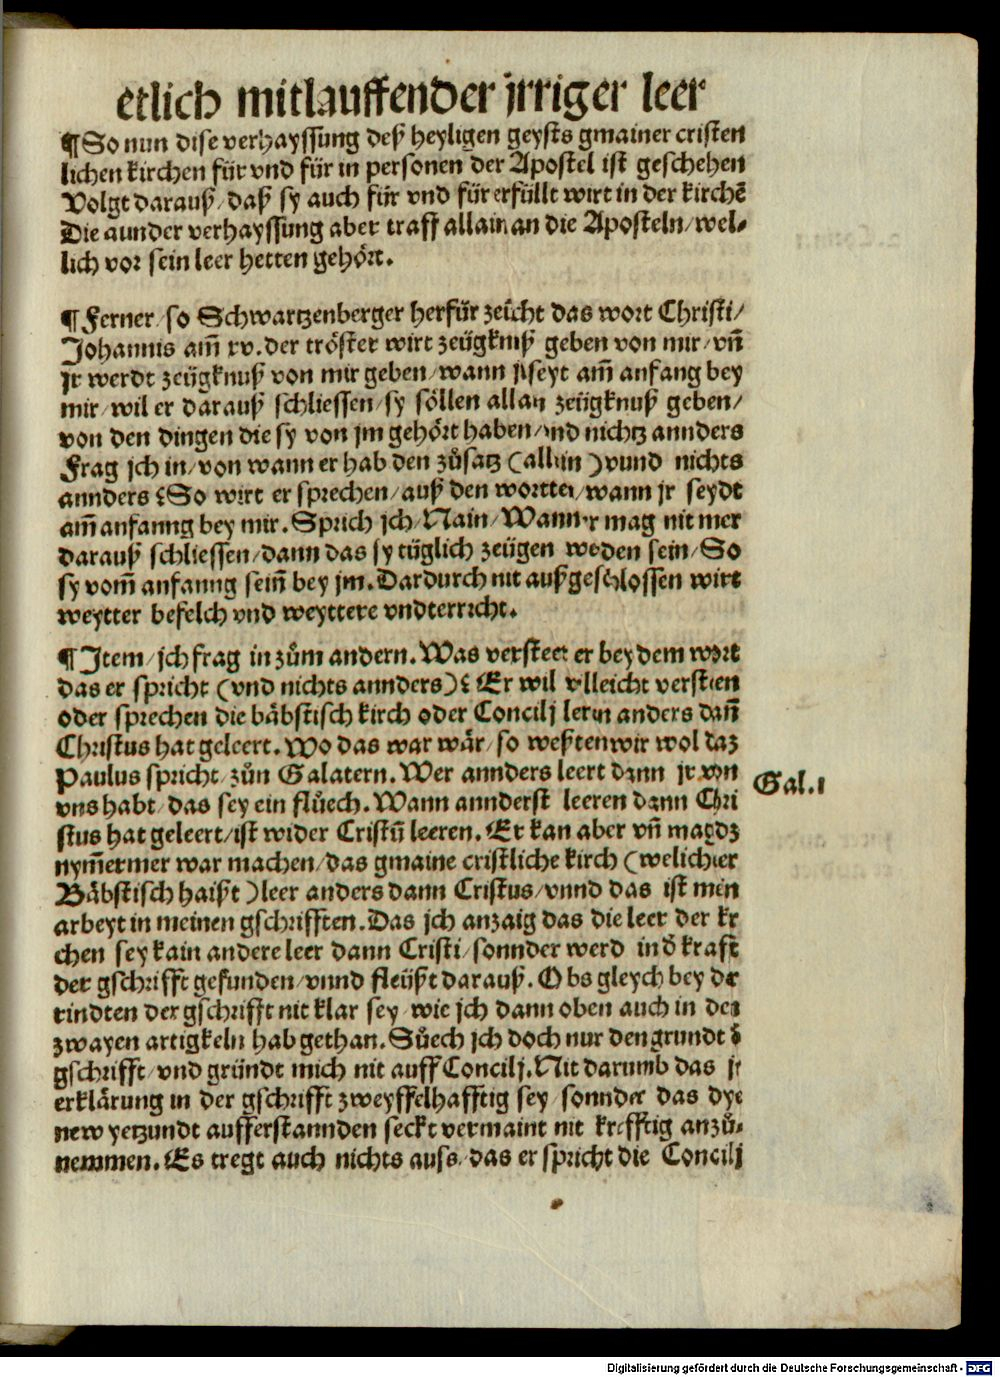 etlich mitlauffender jrriger leer
¶ So nun dise verhayssung deß heyligen geysts gmainer cristen
lichen kirchen für vnd für in personen der Apostel ist geschehen
Volgt darauß / daß sy auch für vnd für erfüllt wirt in der kirchē
Die aunder verhayssung aber traff allain an die Aposteln / wel⸗
lich vor sein leer hetten gehört.
¶ Ferner / so Schwartzenberger herfür zeücht das wort Christi /
Johannis am̄ xv. der tröster wirt zeügknuß geben von mir / vn̄
jr werdt zeügknuß von mir geben / wann jr seyt am̄ anfang bey
mir / wil er darauß schliessen / sy söllen allain zeügknuß geben /
von den dingen die sy von jm gehört haben / vnd nichtz annders
Frag jch in / von wann er hab den zůsatz (allain) vnnd nichts
annders? So wirt er sprechen / auß den wortten / wann jr seydt
am̄ anfanng bey mir. Sprich jch / Nain / Wann er mag nit mer
darauß schliessen / dann das sy tüglich zeügen werden sein / So
sy vom̄ anfanng sein̄ bey jm. Dardurch nit außgeschlossen wirt
weytter befelch vnd weyttere vndterricht.
¶ Jtem / jch frag in zům andern. Was versteet er bey dem wort
das er spricht (vnd nichts annders)? Er wil villeicht versteen
oder sprechen die bäbstisch kirch oder Concilj leren anders dan̄
Christus hat geleert. Wo das war wär / so weßten wir wol daz
Paulus spricht / zůn Galatern. Wer annders leert dann jr von
vns habt / das sey ein flůech. Wann annderst leeren dann Chri
stus hat geleert / ist wider Cristū leeren. Er kan aber vn̄ mag dz
nym̄ermer war machen / das gmaine cristliche kirch (welich er
Bäbstisch haißt) leer anders dann Cristus / vnnd das ist mein
arbeyt in meinen gschrifften. Das jch anzaig das die leer der kir
chen sey kain andere leer dann Cristi / sonnder werd in d̄ kraft
der gschrifft gefunden / vnnd fleüßt darauß. Obs gleych bey der
rindten der gschrifft nit klar sey / wie jch dann oben auch in den
zwayen artigkeln hab gethan. Sůech jch doch nur den grundt d̄
gschrifft / vnd gründt mich nit auff Concilj. Nit darumb das jr
erklärung in der gschrifft zweyffelhafftig sey / sonnder das dye
new yetzundt aufferstannden seckt vermaint nit krefftig anzů⸗
nemmen. Es tregt auch nichts auss / das er spricht die Concilj
Gal. 1
Digitalisierung gefördert durch die Deutsche Forschungsgemeinschaft - DFG